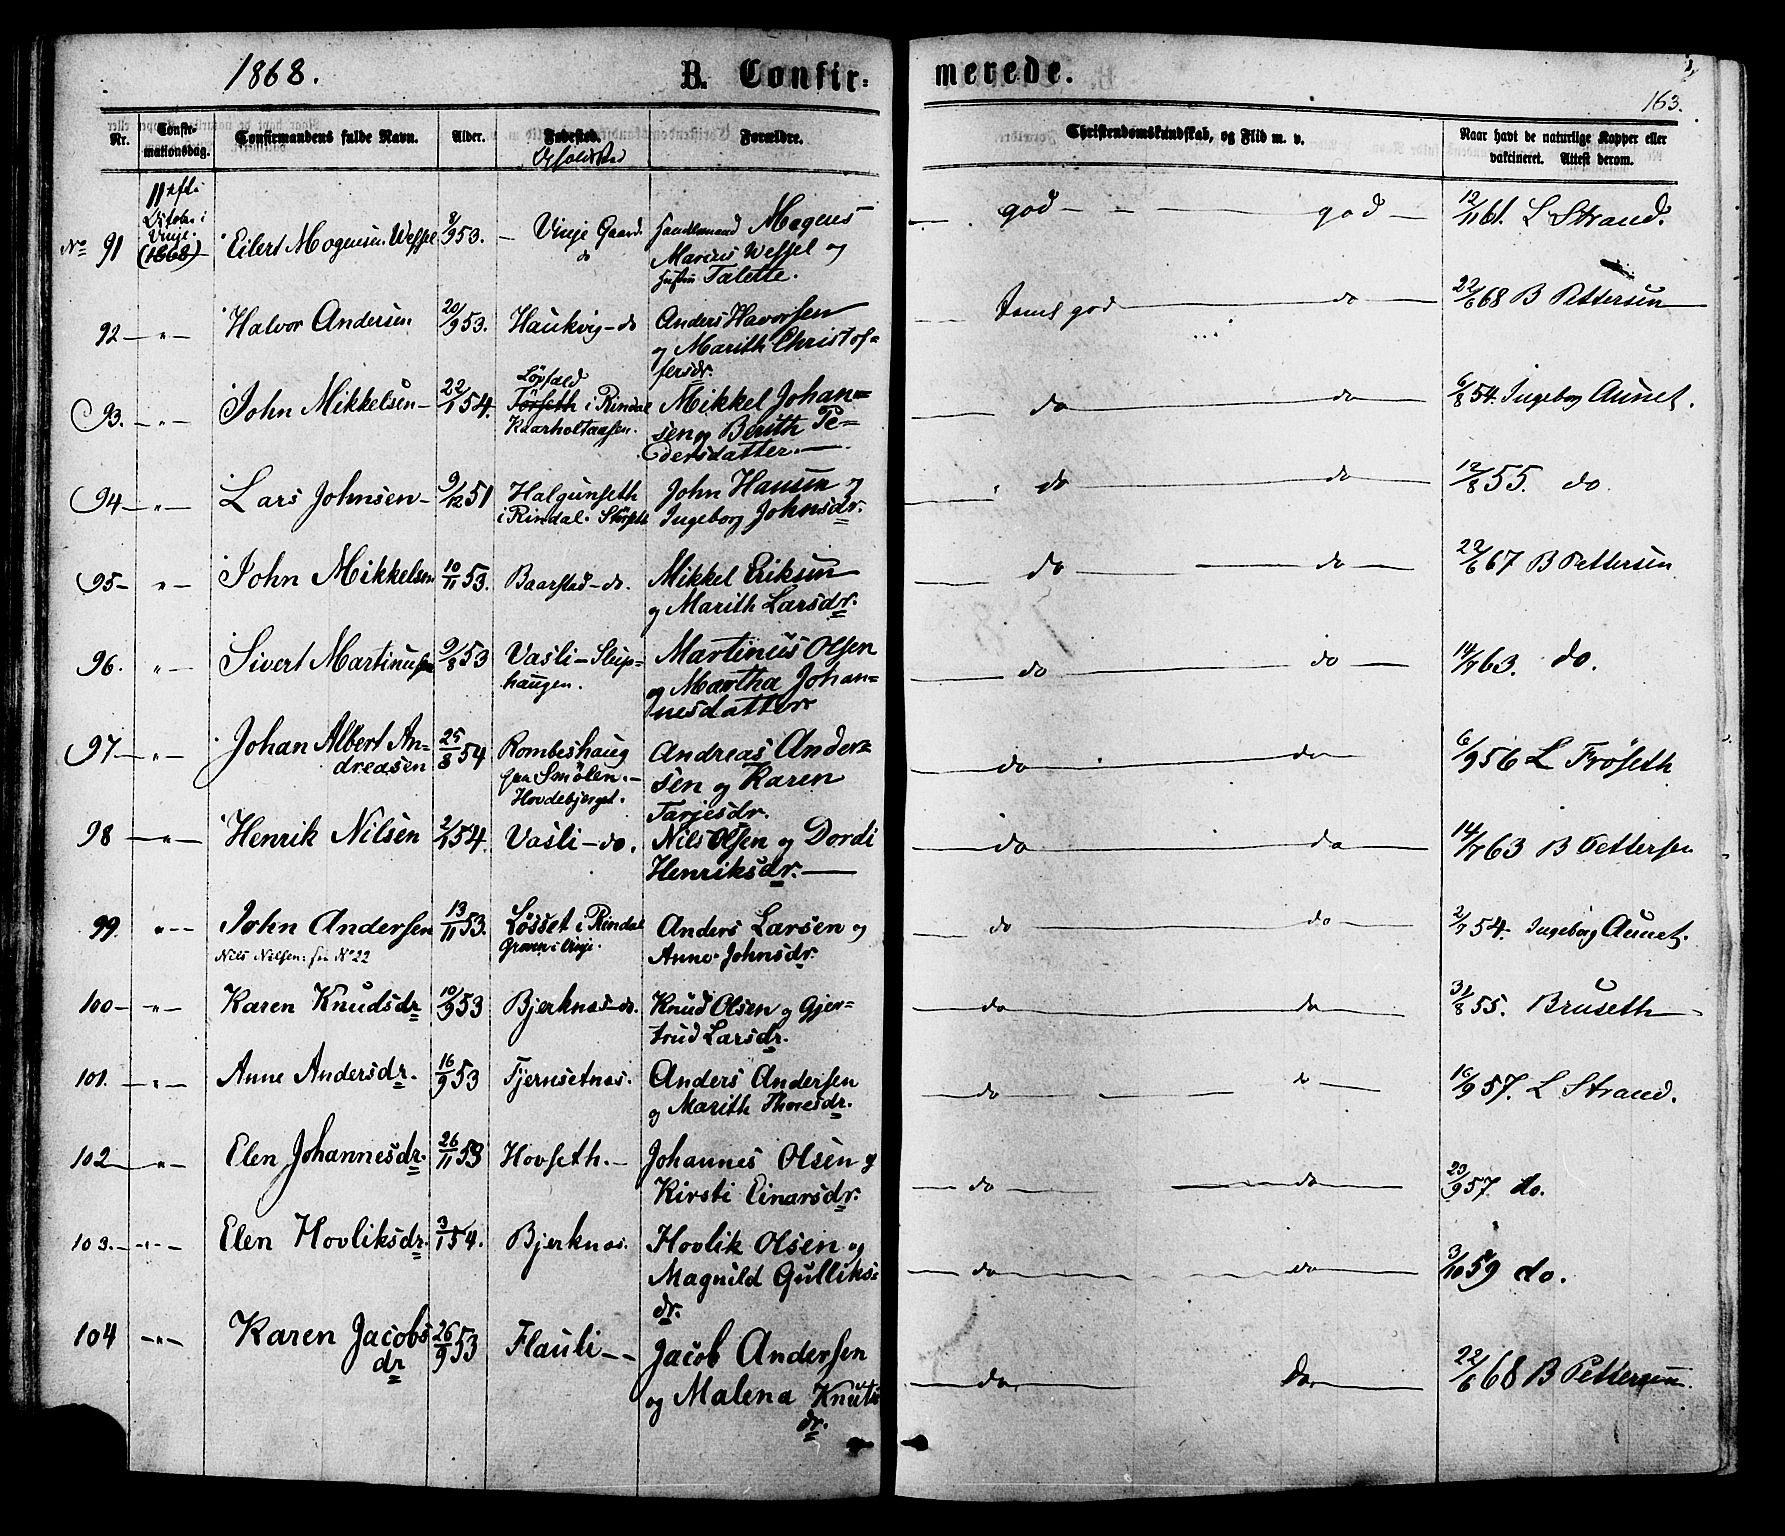 1868. B. Confirmerede.
163.
Nr. Confirmationsdag. Confirmandens fulde Navn. Alder. Fødested. Forældre. Christendomskundskab, og Flid m. v. Naar havt de naturlige Kopper eller vakcineret. Attest derom.
Opholdsted
11 eft.
Vinje.
(1868)
No 91 Eilert Mogensen Wessel 953. – Vinje Gaard. Mogens god – – – god – 12/11 61. L Strand.
do Marius Wessel og
Talette.
92 – " – Halvor Andersen 20/9 53. Haukvig – do Anders Havorsen god do 22/6 68 B Pettersen
og Marith Christof=
fersdr.
Löfald
93. – " – John Mikkelsen – 22/1 54. Törseth i Rindal Mikkel Johan= do do 6/8 54. Ingeborg Aunet.
Kaarholtaasen. sen og Berith Pe=
dersdatter. –
94 – " – Lars Johnsen – 9/12 51 Halgunseth John Hansen og do do 12/8 55. do
i Rindal. Ingeborg Johnsdr.
95 – " – John Mikkelsen 10/11 53. Baarstad – do. Mikkel Eriksen do do 22/6 67 B Pettersen
og Marith Larsdr.
96. " – Sivert Martinusen 9/8 53 Vasli – Martinus Olsen do do 14/7 63. do.
haugen. og Martha Johan=
nesdatter
97 – " – Johan Albert An= 25/8 54 Rombeshaug Andreas Ander= do do 6/9 56 L Fröseth
dreasen fra Smölen. – sen og Karen
Hovdebjerget. Tarjesdr.
98 – " – Henrik Nilsen 2/1 54. Vasli – do. Nils Olsen og Dordi do do 14/7 63 B Pettersen
Henriksdr. –
99. " – – John Andersen 13/11 53. Løsset i Rindal Anders Larsen og do do 2/7 54. Ingeborg Aunet.
Nils Nilsen: No 22 i Vinje. Anne Johnsdr.
100 – " – Karen Knudsdr 10/9 53 Bjerknes – do. Knud Olsen og Gjer= do do 31/8 55. Bruseth –
trud Larsdr.
101. – " – Anne Andersdr. 16/9 53 Tjernsetnes. Anders Andersen do do 16/9 57. L Strand.
og Marith Thoresdr.
102 – " – Elen Johannesdr. 26/11 53 Hovseth. – Johannes Olsen og do do 23/9 57. do.
Kirsti Einarsdr.
103. – " – Elen Hovliksdr. 3/1 54. Bjerknes. Hovlik Olsen og do do 3/10 59 do.
Magnild Gulliks=
dr.
104 – " – Karen Jacobs 26/9 53 Flauli – – Jacob Andersen do. Do. 22/6 68 B Pettersen.
dr og Malena Knuts
dr.